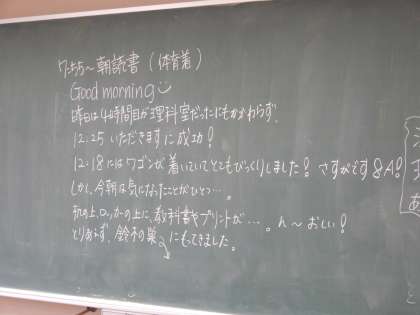 7:55~朝読書(体育着)
Good morning
昨日は4時間目が理科室だったにもかかわらず、
12:25 いただきますに成功!
12:18にはワゴンが着いていてとてもびっくりしました! さすがです8A!
しかし、今朝は気になったことがひとつ…。
机の上、ロッカーの上に、教科書やプリントが…。ん~おしい!
とりあえず、鈴木の巣にもってきました。